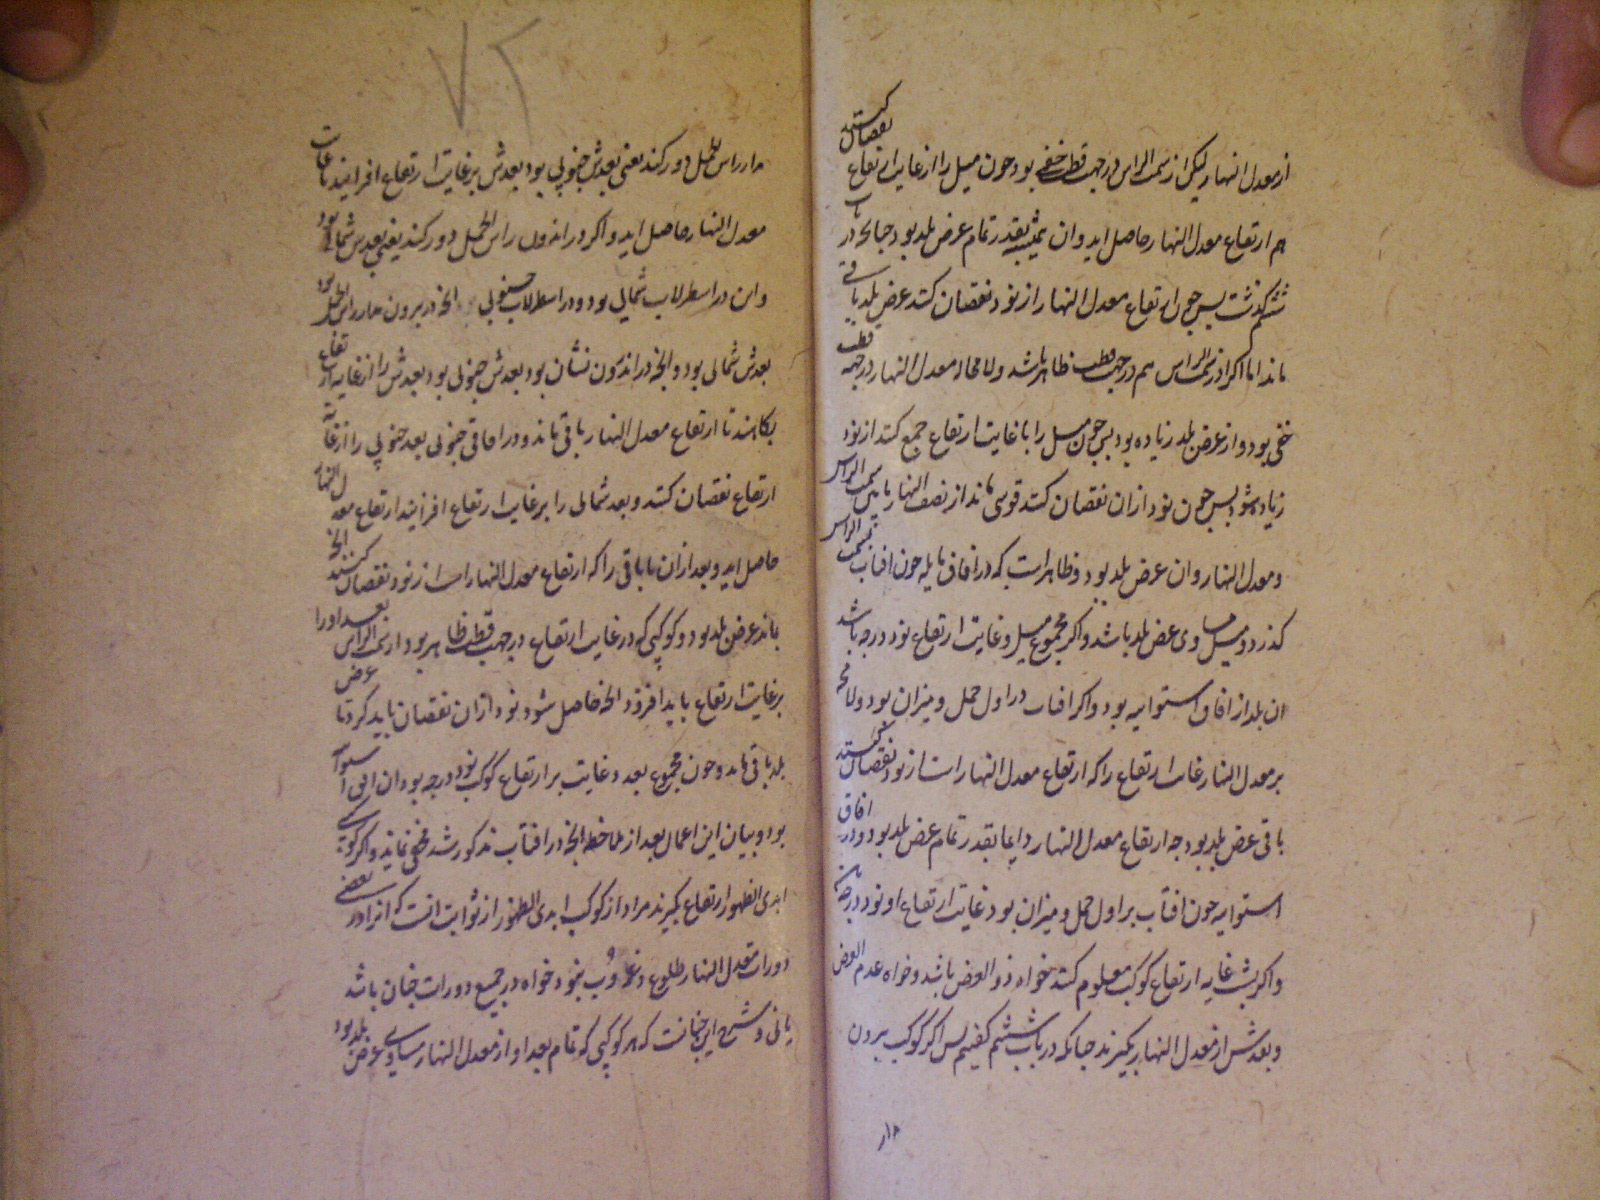 از معدل النهار لیکن از سمت الراس در جهت قطب خفی بود جون میل را از غایت ارتفاع نقصان کنند
هم ارتفاع معدل النهار حاصل اید و ان همیشه بقدر تمام عرض بلد بود جنانجه در باب
ششم کذشت بس جون ارتفاع معدل النهار از نود نقصان کنند عرض بلد باقی
ماند اما اکر از سمت الراس هم در جهت قطب ظاهر باشد ولا محاله معدل النهار در جهة قطب
خفی بود و از عرض بلد زیاده بود بس جون میل را با غایت ارتفاع جمع کنند از نود
زیاده شود بس جون نود ازان نقصان کنند قوسی ماند از نصف النهار ما بین سمت الراس
و معدل النهار وان عرض بلد بود و ظاهر است که در افاق مایله جون افتاب بسمت الراس
کذرد میل مساوی عرض بلد باشد و اکر مجموع میل و غایت ارتفاع نود درجه باشد
ان بلد از افاق استوائیه بود و اکر افتاب در اول حمل و میزان بود ولا محه
بر معدل النهار غایت ارتفاع را که ارتفاع معدل النهار است از نود نقصان کنند
باقی عرض بلد بود جه ارتفاع معدل النهار دایما بقدر تمام عرض بلد بود و در افاق
استوائیه جون افتاب بر اول حمل و میزان بود غایت ارتفاع او نود درجه باشد
و اکر بشب غایة ارتفاع کوکب معلوم کنند خواه ذو العرض باشد و خواه عدم العرض
و بعدش از معدل النهار بکیرند جنانکه در باب ششم کفتیم بس اکر کوکب بیرون
مدار
۷۲
مدار راس الحمل دور کند یعنی بعدش جنوبی بود بعدش بر غایت ارتفاع افزایند تا غایت
معدل النهار حاصل اید و اکر در اندرون راس الحمل دور کند یعنی بعدش شمالی بود
و این در اسطرلاب شمالی بود و در اسطرلاب جنوبی انجه در بیرون مدار راس الحمل بود
بعدش شمالی بود و انجه در اندرون نشان بود بعدش جنوبی بود بعدش را از غایة ارتفاع
بکاهند تا ارتفاع معدل النهار باقی ماند و در افاقی جنوبی بعد جنوبی را از غایة
ارتفاع نقصان کنند و بعد شمالی را بر غایت ارتفاع افزایند ارتفاع معدل النهار
حاصل اید و بعد ازان ما باقی را که ارتفاع معدل النهار است از نود نقصان کنند انجه
بماند عرض بلد بود و کوکبی که در غایت ارتفاع در جهت قطب ظاهر بود از سمت الراس بعد او را
بر غایت ارتفاع باید افزود انجه حاصل شود نود ازان نقصان باید کرد تا عرض
بلد باقی ماند و جون مجموع بعد و غایت بر ارتفاع کوکب نود درجه بود ان افق استوا
بود و بیان این اعمال بعد از ملاحظه انجه در افتاب مذکور شد مخفی نماند و اکر کوکبی
ابدی الظهور ارتفاع بکیرند مراد از کوکب ابدی الظهور از ثوابت انست که انرا در بعضی
دورات معدل النهار طلوع و غروب نبود خواه در جمیع دورات جنان باشد
یا نی و شرح این جنانست که هر کوکبی که تمام بعد او از معدل النهار مساوی عرض بلد بود